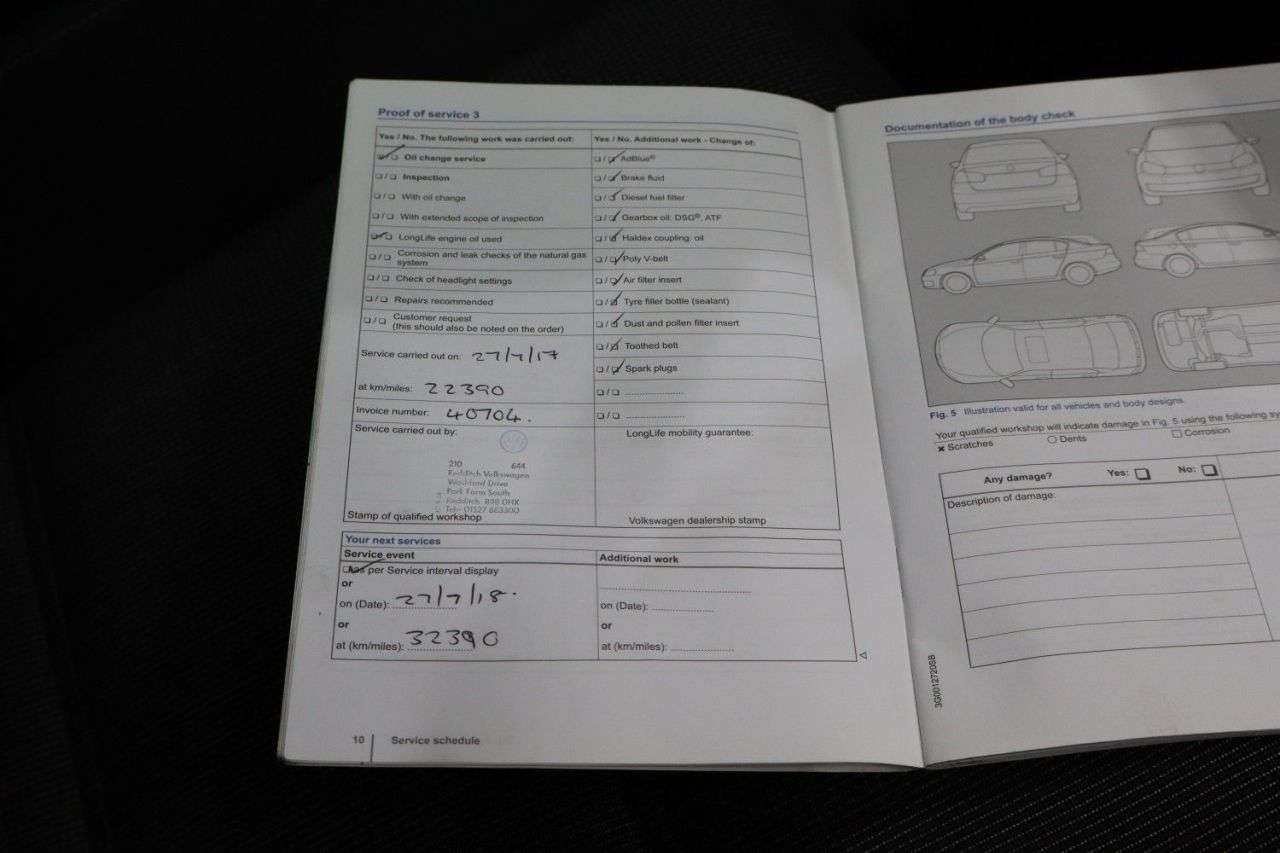 Proof of service 3
Yes / No. The following work was carried out:
Oil change service
Inspection
With oil change
With extended scope of inspection
LongLife engine oil used
Corrosion and leak checks of the natural gas
system
Check of headlight settings
Repairs recommended
Customer request
(this should also be noted on the order)
Service carried out on: 27/7/17
at km/miles: 22390
Invoice number: 40704.
Service carried out by:
210 644
Redditch Volkswagen
Washford Drive
Park Farm South
Redditch. B98 0HX
Tel:- 01527 663300
Stamp of qualified workshop
Yes / No. Additional work - Change of:
AdBlue®
Brake fluid
Diesel fuel filter
Gearbox oil: DSG®, ATF
Haldex coupling: oil
Poly V-belt
Air filter insert
Tyre filler bottle (sealant)
Dust and pollen filter insert
Toothed belt
Spark plugs
LongLife mobility guarantee:
Volkswagen dealership stamp
Your next services
Service event
As per Service interval display
or
on (Date): 27/7/18.
or
at (km/miles): 32390
Additional work
on (Date):
or
at (km/miles):
10 Service schedule
Documentation of the body check
Fig. 5 Illustration valid for all vehicles and body designs.
Your qualified workshop will indicate damage in Fig. 5 using the following
Scratches Dents Corrosion
Any damage? Yes: No:
Description of damage:
3G0012720SB